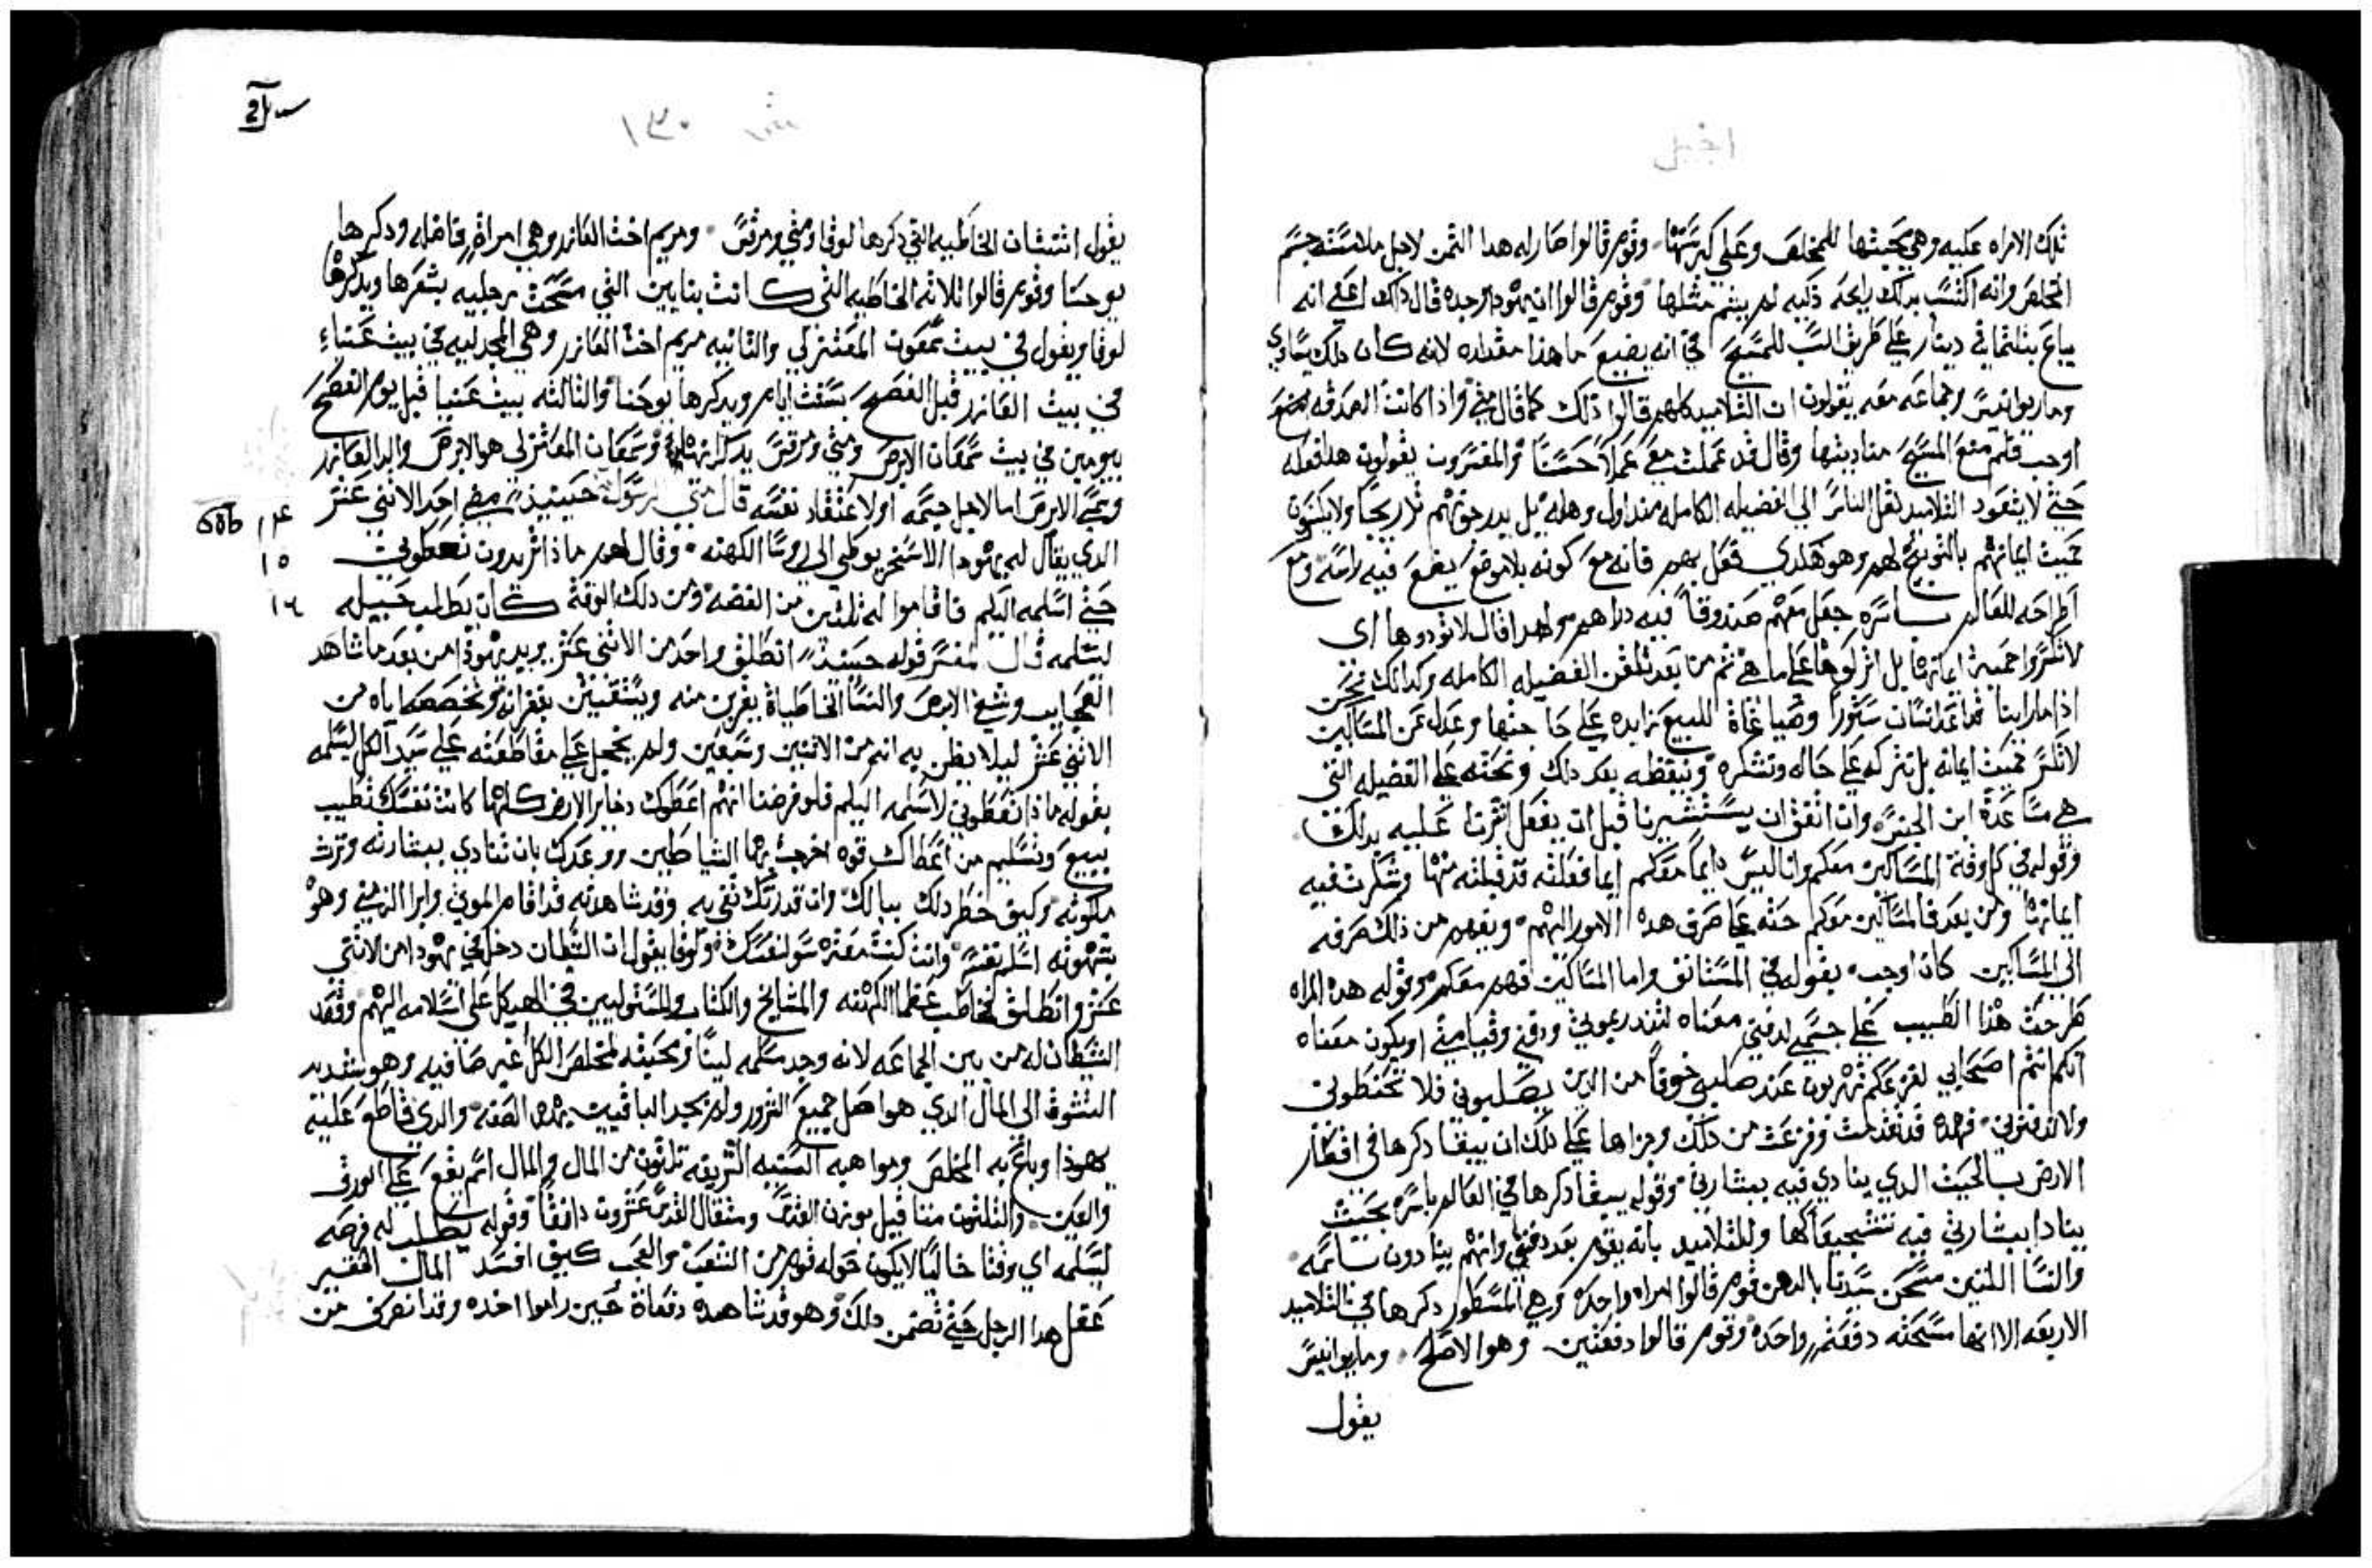 انجيل
تلك الامراه عليه وهي بمحبتها للمخلص وعلي كبر سنها وقوم قالوا صار له هدا الثمن لاجل ملامسته جسم
المخلص وانه اكتسب بدلك رايحه ذكيه لم يشم مثلها وقوم قالوا ان يهودا وحده قال ذلك اعني انه
يباع بثلثمايه دينار علي طريق السب للمسيح في انه يضيع ما هذا مقداره لانه كان دلك يساوي
وماربوانيس وجماعه معه يقولون ان التلاميد كلهم قالوا ذلك كما قال متي واذا كانت الصدقه
اوجب فلم منع المسيح مناديتها وقال قد عملت معي عملاً حسناً والمفسرون يقولون هدا فعله
حتي لا يتعود التلاميد نقل الناس الي الفضيله الكامله مند اول وهله بل يدرجونهم تدريجاً ولا يكسرون
حميت ايمانهم بالتوبيخ لهم وهو هكدي فعل بهم فانه مع كونه بلا موضع يضع فيه راسه ومع
اطراحه للعالم باسره جعل معهم صندوقاً فيه دراهم ولهدا قال لا تودوها اي
لا تكسروا حمية ايمانها بل اتركوها علي ما هي ثم من بعد تلقن الفضيله الكامله وكدلك نحن
اذا ما راينا قد اعد انسان ستوراً وصياغاة للبيع زايده علي حاجتها وعدل عن المساكين
لا نكسر حميت ايمانه بل نتركه علي حاله ونشكره ونيقظه بعد دلك ونحثه علي الفضيله التي
هي مساعدة ابن الجنس وان اتفق ان يستشيرنا قبل ان يفعل اشرنا عليه بدلك
وقوله في كل وقت المساكين معكم وانا ليس دايماً معكم اي ما فعلته قد قبلته منها وشكرت فيه
ايمانها ومن بعد فالمساكين معكم حثه علي صرف هده الامور اليهم ويفهم من ذلك صرفه
الي المساكين كان اوجب بقوله في المستانف واما المساكين فهم معكم وقوله هده المراه
طرحت هذا الطيب علي جسمي لدفني معناه لتندر بموتي ودفني وقيامتي او يكون معناه
انكم انتم اصحابي لفزعكم تهربون عند صلبي خوفاً من الدين يصلبوني فلا تحنطوني
ولا تدفنوني فهده قد تقدمت وفزعت من ذلك وجزاها علي ذلك ان يبقا دكرها في اقطار
الارض بالحيث الدي ينادي فيه ببشارتي وقوله يبقا دكرها في العالم باسره بحيث
ينادا ببشارتي فيه تشجيعاً لها وللتلاميد بانه يقوم بعد دفني وانهم ينادون باسمه
والنسا اللتين مسحن سيدنا بالدهن قوم قالوا امراه واحده وهي المسطور دكرها في التلاميد
الاربعه الا انها مسحته دفعة واحده وقوم قالوا دفعتين وهو الاصلح وماربوانيس
يقول
يقول اثنتان الخاطيه التي ذكرها لوقا ومتي ومرقس ومريم اخت العازر وهي امراة فاضله ودكرها
يوحنا وقوم قالوا ثلاثه الخاطيه التي كانت بنايين التي مسحت رجليه بشعرها ويدكرها
لوقا ويقول في بيت سمعون المعتزلي والثانيه مريم اخت العازر وهي المجدليه في بيت عنياء
في بيت العازر قبل الفصح بستت ايام ويدكرها يوحنا والثالثه ببيت عنيا قبل يوم الفصح
بيومين في بيت سمعان الابرص ومتي ومرقس يدكرانها وسمعان المعتزلي هو الابرص والد العازر
وسمي الابرص اما لاجل جسمه او لاعتقاد نفسه قال متي الرسول حينيذ مضي احد الاثني عشر
١٤
الدي يقال له يهودا الاسخريوطي الي روسا الكهنه وقال لهم ماذا تريدون تعطوني
١٥
حتي اسلمه اليكم فاقاموا له ثلثين من الفضه ومن دلك الوقت كان يطلب حيله
١٦
ليسلمه قال المفسر قوله حينيذ انطلق واحد من الاثني عشر يريد يهودا من بعد ما شاهد
العجايب وشفي الابرص والنسا الخاطياة يقربن منه ويستقنين بغفرانه وتخصصه اياه من
الاثني عشر ليلا يظن به انه من الاثنين وسبعين ولم يخجل علي مقاطعته علي سيد الكل ليسلمه
بقوله ماذا تعطوني لاسلمه اليكم فلو فرضنا انهم اعطوك دخاير الارض كلها كانت نفسك تطيب
ببيع وتسليم من اعطاك قوه اخرجت بها الشياطين ووعدك بان تنادي ببشارته وترث
ملكوته وكيف خطر دلك ببالك وان قدرتك تفي به وقد شاهدته قد اقام الموتي وابرا الزمني وهو
بشهوته اسلم نفسه وانت كنت معثره سو لنفسك ولوقا يقول ان الشطان دخل في يهودا من الاثني
عشر وانطلق فخاطب عظما الكهنه والمشايخ والكتاب والمستوليين في الهيكل علي اسلامه اليهم وقصد
الشيطان له من بين الجماعه لانه وجد مسلمه لينا ومحبته لمخلص الكل غير صافيه وهو شديد
التشوف الي المال الدي هو اصل جميع الشرور ولم يجد الباقيين بهده الصفه والدي قاطع عليه
يهودا وباع به المخلص ومواهبه السنيه الشريفه ثلثون من المال والمال اسم يقع علي الورق
والعين والثلثون مثاقيل بوزن القدس ومثقال القدس عشرون دانقاً وقوله يطلب له فرصه
ليسلمه اي وقتا خاليا لا يكون حوله قوم من الشعب والعجب كيف افسد المال الفقير
عقل هدا الرجل حتي تضمن دلك وهو قد شاهده دفعاة حين راموا اخده وقد انصرف من